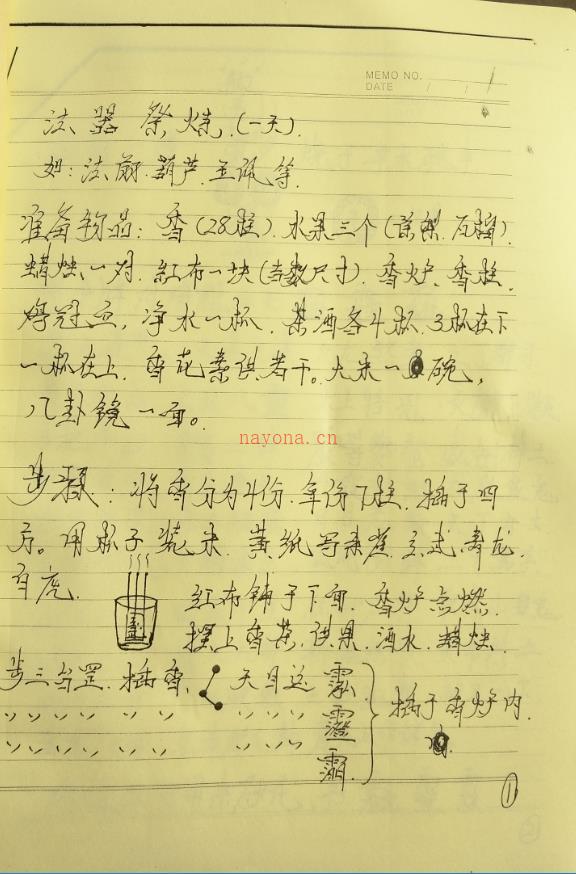 MEMO NO. 1
DATE / /
法器祭炼,(一天).
如:法剑.葫芦.玉佩等.
准备物品:香(28柱).水果三个(
蜡烛一对.红布一块(当数尺寸).香炉、香柱.
净水一杯.茶酒各4杯,3杯在下
一杯在上.香花素供若干。大米一碗,
八卦镜一面。
nayona.cn
步骤:将香分为4份.每份7柱.插于四
方。用杯子装米.黄纸写朱雀.玄武.青龙.
白虎.
红布铺于下面.香炉点燃.
摆上香茶.供果.酒水.蜡烛.
步三台罡.插香.天目运
插于香炉内.
①